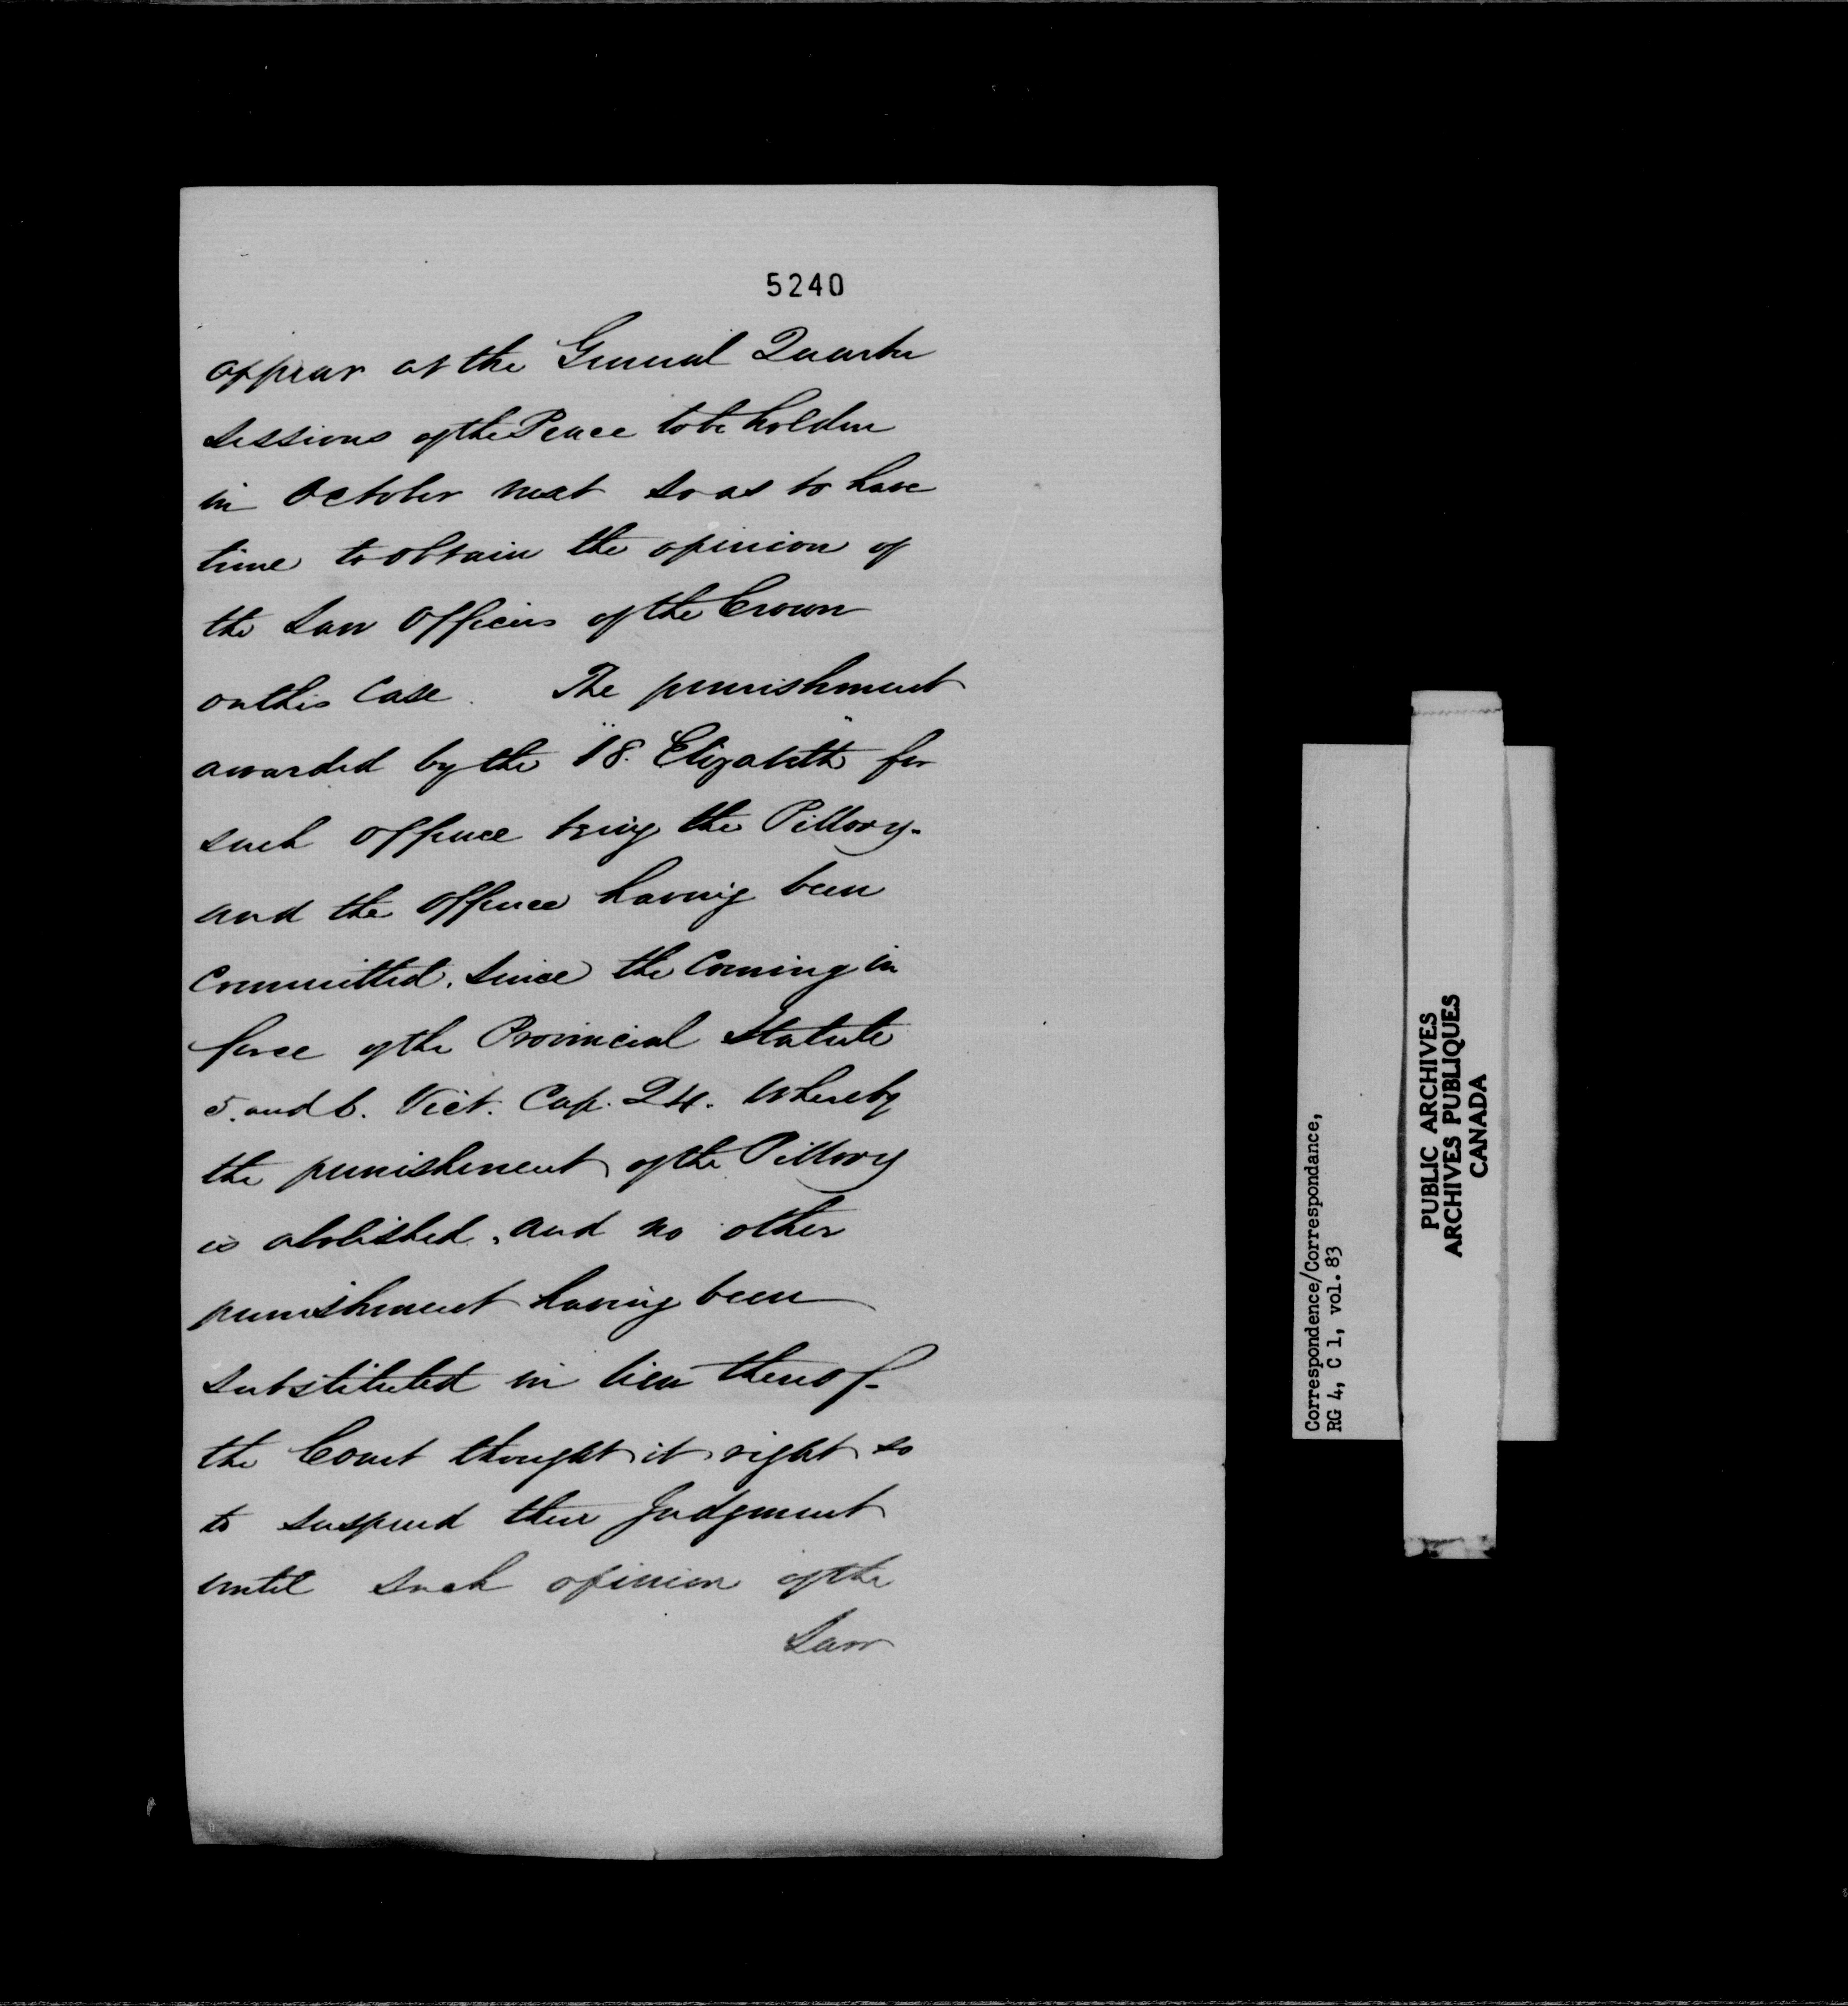 5240
appear at the General Quarter
Sessions of the Peace to be holden
in October next so as to have
time to obtain the opinion of
the Law Officers of the Crown
on this Case. The punishment
awarded by the "18. Elizabeth" for
such Offence being the Pillory.
and the Offence having been
Committed. Since the Coming in
force of the Provincial Statute
5. and 6. Vict. Cap. 24. Whereby
the punishment of the Pillory
is abolished, and no other
punishment having been
substituted in lieu thereof.
the Court thought it right so
to suspend their Judgment
until such opinion of the
Law
Correspondence/Correspondance,
RG 4, C 1, vol. 83
PUBLIC ARCHIVES
ARCHIVES PUBLIQUES
CANADA